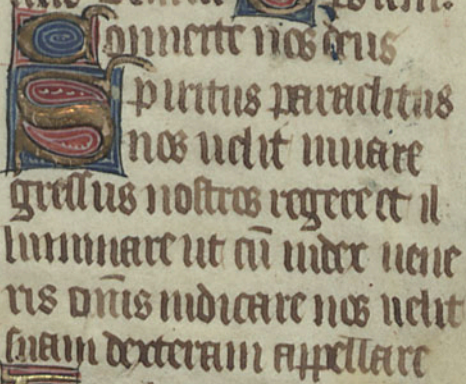 Conuerte nos deus
Spiritus paraclitus
nos uelit iuuare
gressus nostros regere et il
luminare ut cũ iudex uene
ris om̄is iudicare nos uelit
suam dexteram appellare